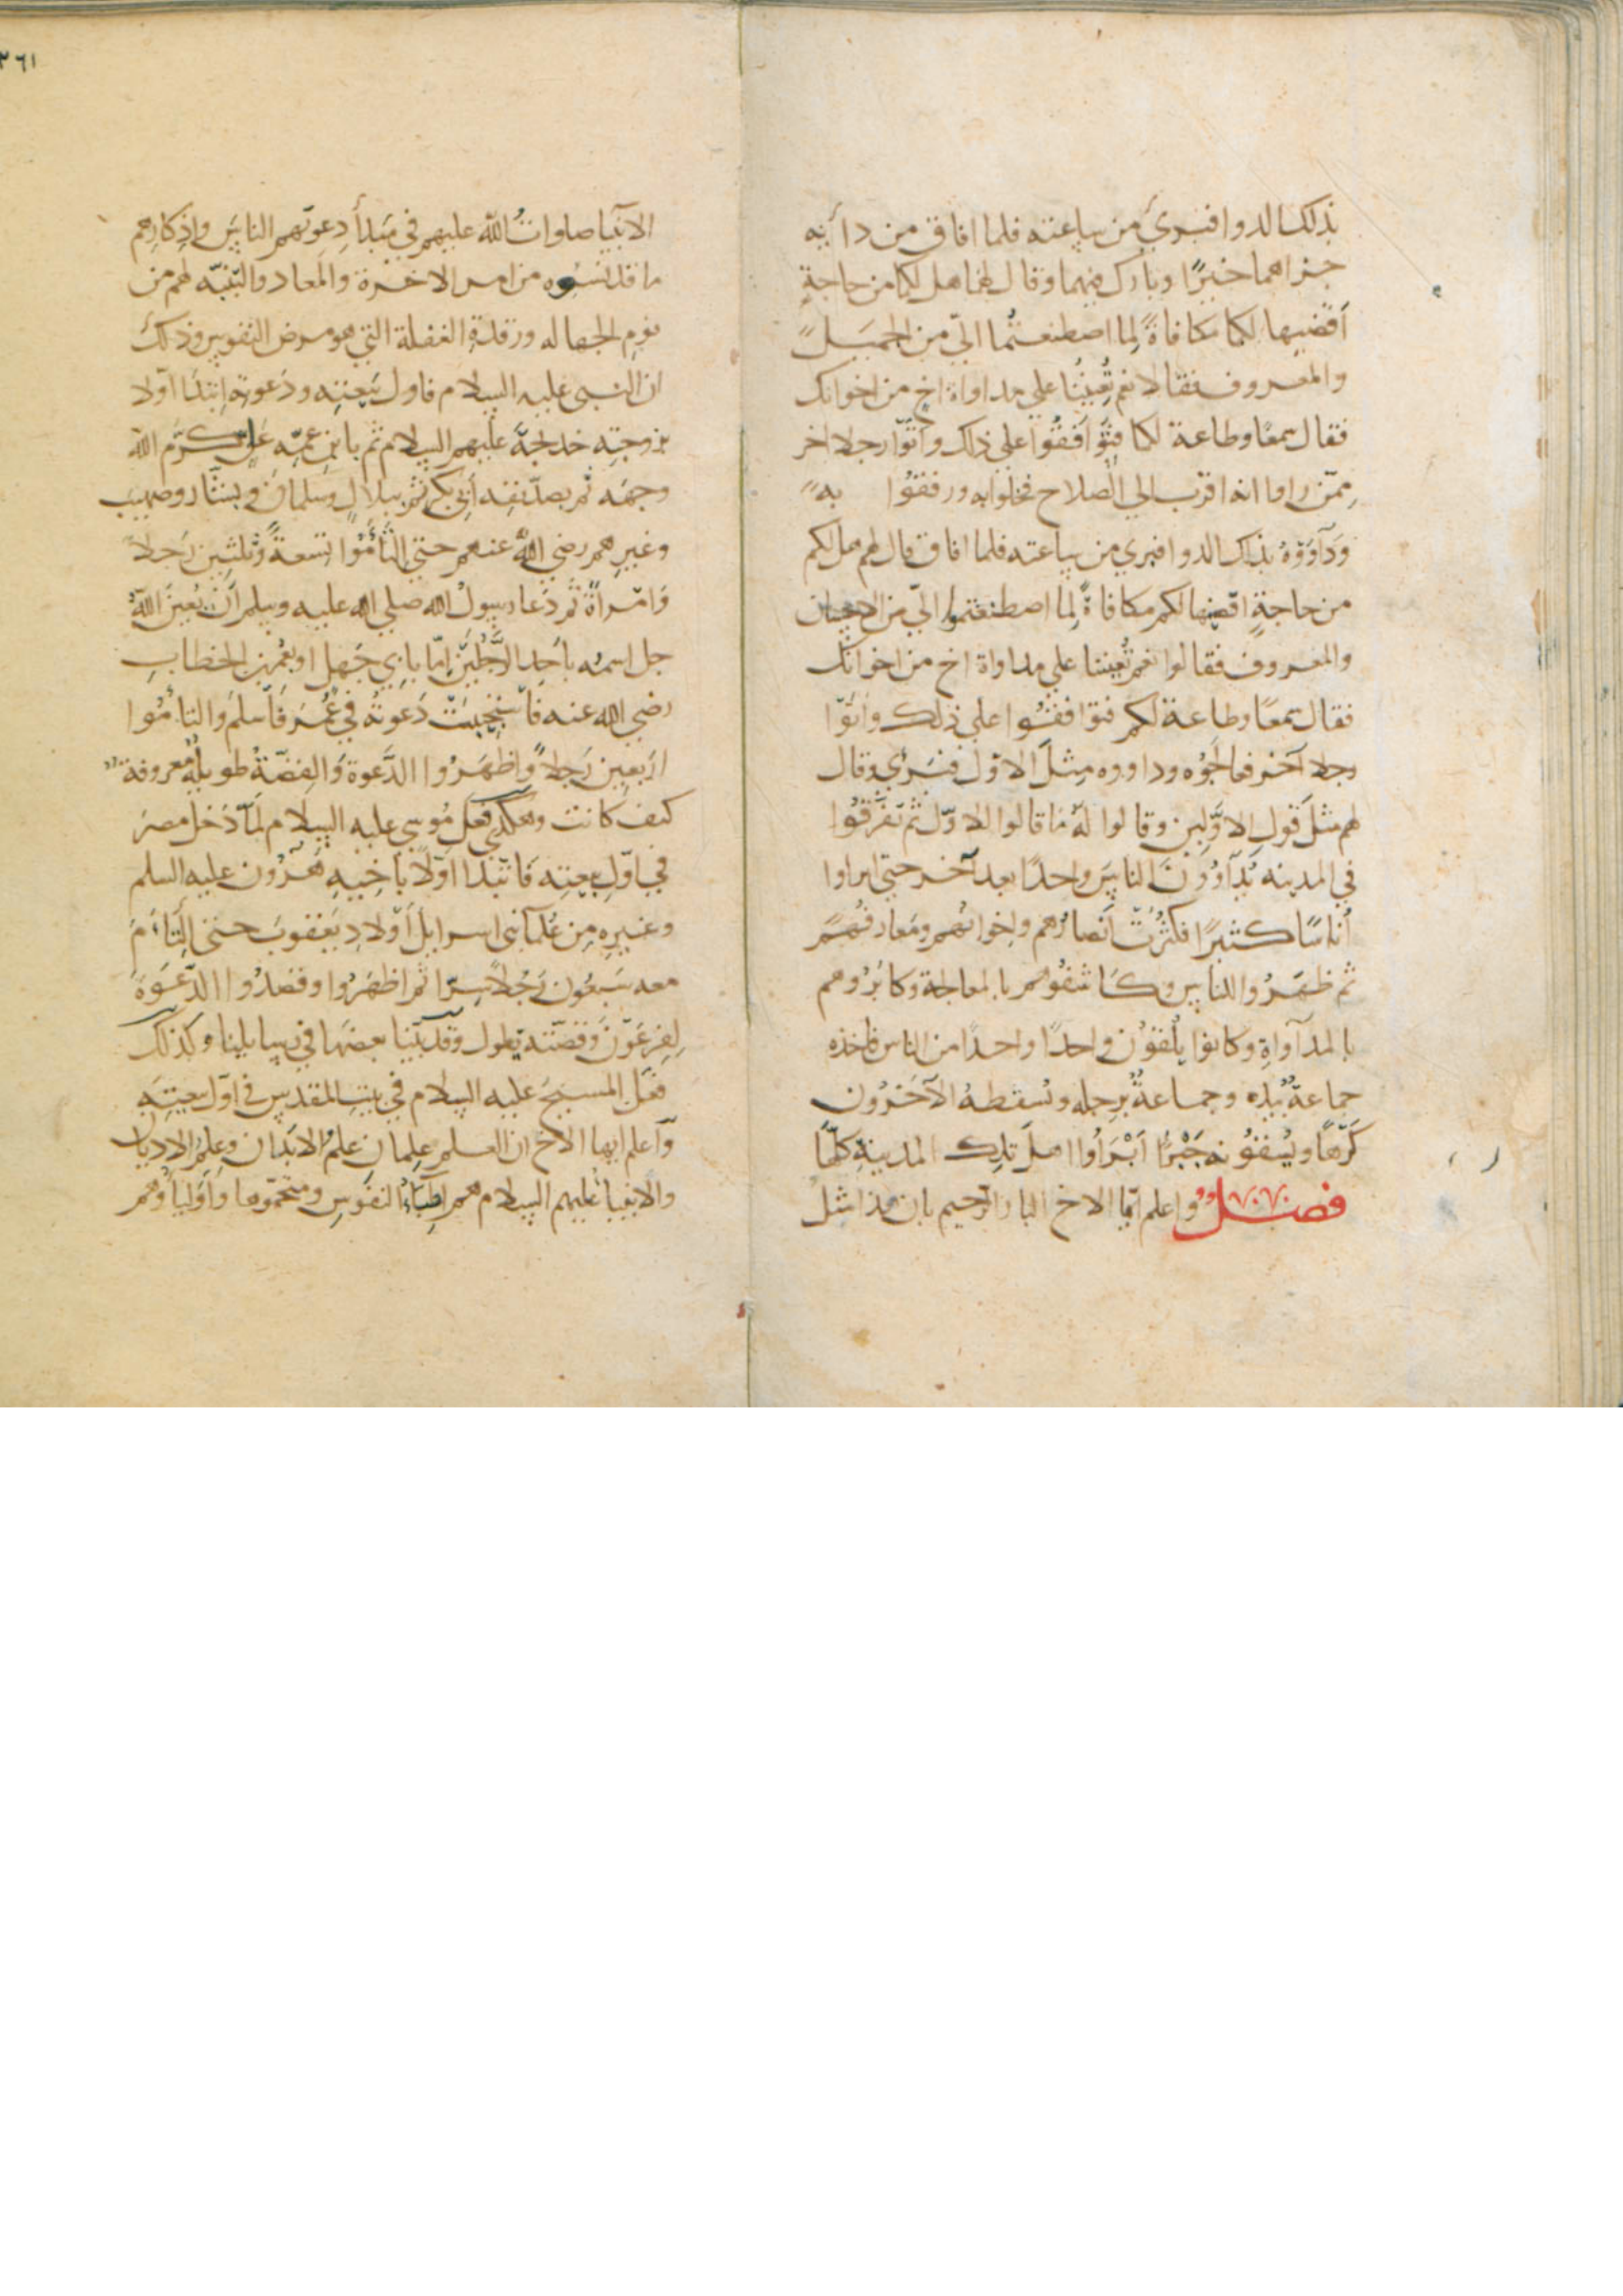 بذلك الدوا فبرئ من ساعته فلما افاق من دائه
جزاهما خيرًا وبارك فيهما وقال لهما هل لكما من حاجةٍ
أقضيها لكما مكافاةً لِما اصطنعتُما اليّ من الجميل
والمعروف فقالا نعم تُعِينُنا علي مداواة اخٍ من اخوانك
فقال سمعًا وطاعة لكما فتوافقُوا علي ذلك واتوّا رجلا اخر
مِمّن راوا انه اقرب الي الصلاح فخلوا به ورفقوُا به
وَدَاوَوْهُ بذلك الدوا فبري من ساعته فلما افاق قال لهم هل لكم
من حاجةٍ اقضيها لكم مكافاةً لِما اصطنعتموا اليّ من الاحسان
والمعروف فقالوا نعم تُعِيننا علي مداواة اخ من اخوانك
فقال سمعًا وطاعة لكم فتوافقُوا علي ذلك واتوّا
رجلا آخر فعالجوُه وداووه مِثلَ الاوّل فبَرئ وقال
لهم مثل قول الاوّلين وقالوا لهُ ما قالوا للاوّل ثم تفرّقُوا
في المدينه يُداوُونَ الناسَ واحدًا بعد آخر حتي ابراوا
أُناسًا كثيرًا فكثرُت أنصارُهم واخوانُهم ومَعارفُهم
ثم ظهَرُوا للناس وكَاشفُوهم بالمعالجة وكابَرُوهم
بالمداواةِ وكانوا يلْقوْن واحدًا واحدًا من الناس فاخذه
جماعةٌ بيَده وجماعةٌ برِجله وتُسقطهُ الآخَرُون
كَرّهًا ويُسقوُنه جَبْرًا ابْرَأُوا اهلَ تلك المدينةِ كلّها
فصل واعلم ايّها الاخ البار الرّحيم بان هذا مثل
٣٦١
الانبيا صلوات الله عليهم في مَبْدأ دعوتهم الناسَ واذكارهم
ما قد نسُوه من امر الاخرة والمعاد والتنبّه لهم من
نومِ الجهاله ورقدةِ الغفلة التي هو مرض النفوس وذلك
ان النبي عليه السلام في اول مَبعثِه ودَعوته ابتدَا اوّلا
بزوجتِه خديجةَ عليهم السلام ثم بابنِ عمّه عَلي كرّم الله
وجهَه ثم بصدّيقه أبي بكرٍ ثم ببلالٍ وسَلمانَ ويسَار وصهيب
وغيرِهم رضي الله عنهم حتي التأَمُوا تسعةً وثلثين رَجلاً
وَامْراةً ثم دَعا رسولُ الله صلي الله عليه وسلم أن يُعِينَ اللهُ
جل اسمُه باحَد الرَّجُليْن اِمّا بابِي جَهل او بعُمر بن الخطابِ
رضي الله عنه فاستُجِيبَتْ دَعوتُه في عُمَر فأسلمَ والتأمُوا
اربعين رَجلاً واظهَرُوا الدّعوة وَالقِصّةُ طويلةٌ معروفة
كيف كانت وهكذي فعَل مُوسي عليه السلام لمّا دخل مصرَ
في اوّل بعثتِه فابتدا اوّلا بأخِيهِ هَرُون عليه السلم
وغيرِه مِن عُلمآ بني اسرايل أوْلادِ يَعقوب حتي التأَمَ
معه سَبعُون رَجُلاً سِرّا ثم اظهَرُوا وقصدُوا الدّعْوةَ
لِفِرعَوْن وَقصّته يطول وقد بيّنا بعضَها في رسايلِنا وكذلك
فعَل المسيحَ عليه السلام في بيت المقدسِ في اوّل بعثتِه
وَاعلم ايها الاخ ان العلم عِلمان علمُ الابدان وعلمُ الاديان
والانبيا عليهم السلام هم اَطِبّاءُ النفوسِ ومنجّموها واوليَاوُهم